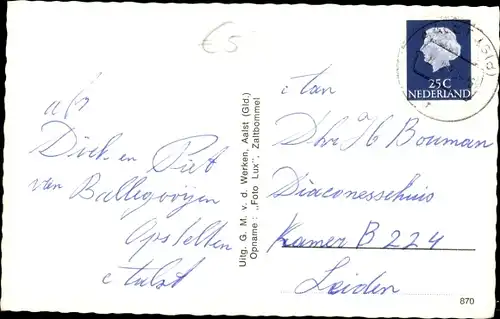 €5
afz
Dick en Piet
van Ballegooijen
Opstelten
Aalst
Uitg. G. M. v. d. Werken, Aalst (Gld.)
Opname: „Foto Lux", Zaltbommel
25C
NEDERLAND
Aan
Dhr. H Bouman
Diaconessehuis
Kamer B 224
Leiden
870